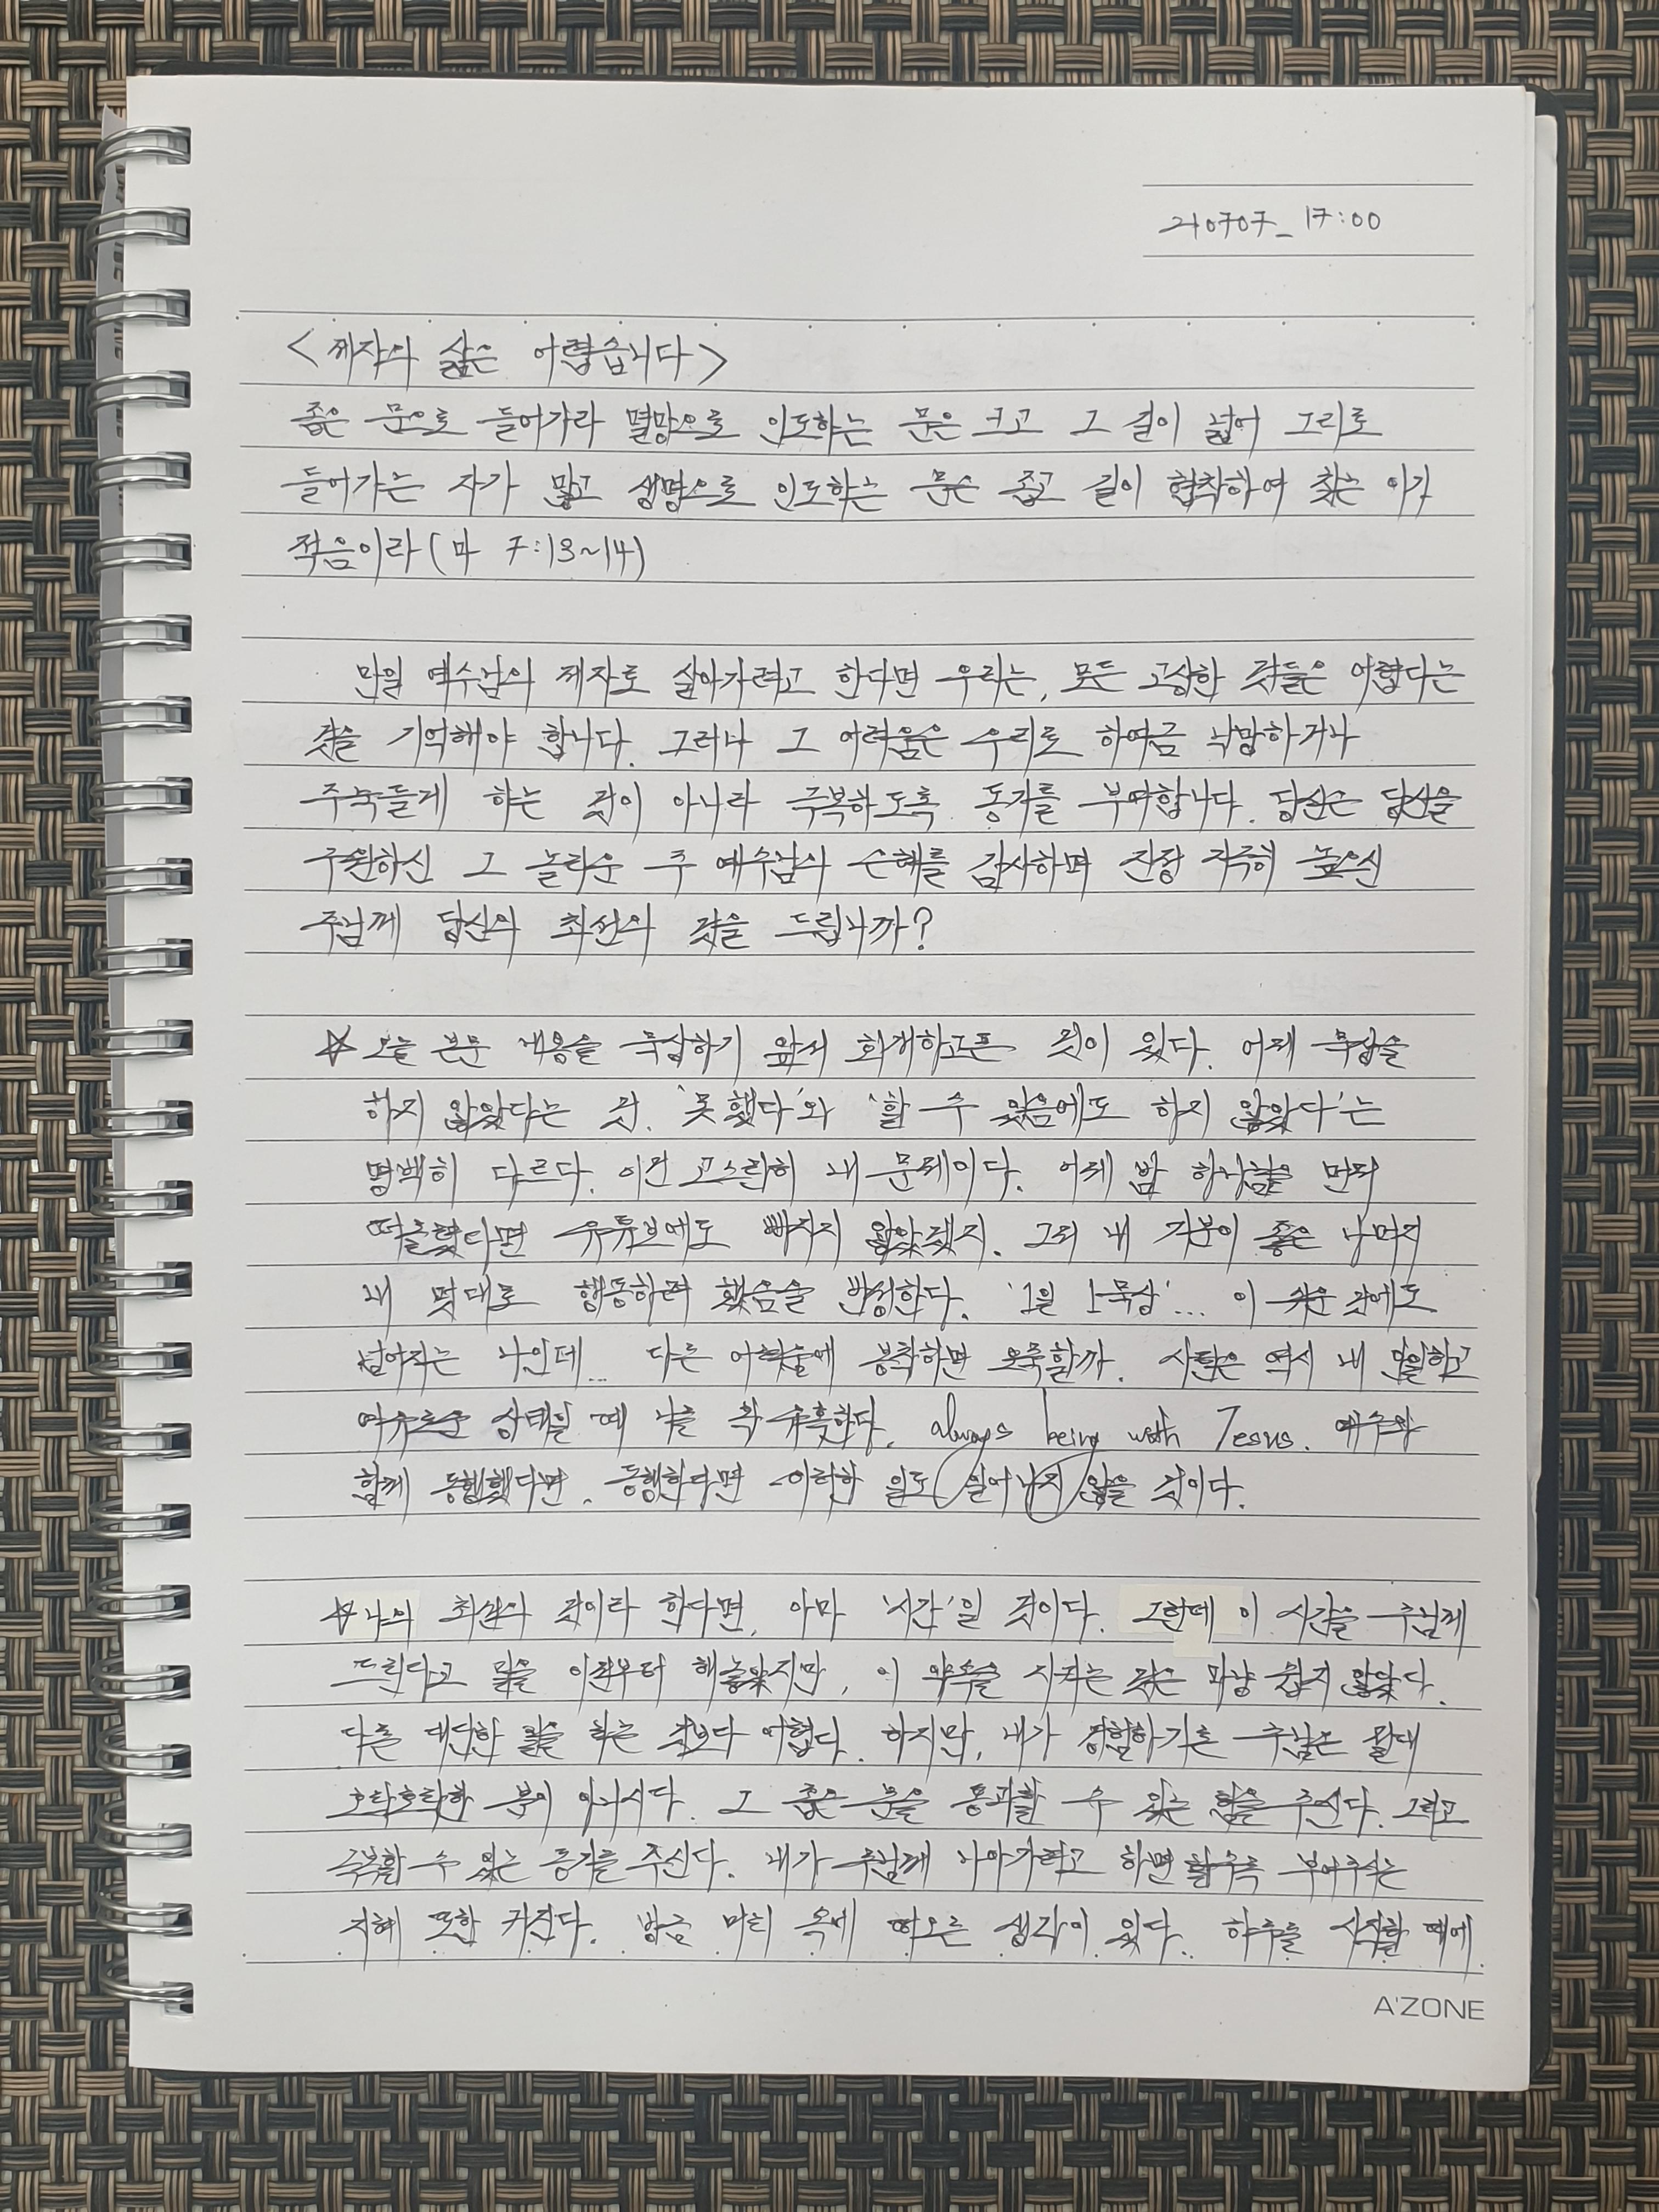 210707_17:00
<제자의 삶은 어렵습니다>
좁은 문으로 들어가라 멸망으로 인도하는 문은 크고 그 길이 넓어 그리로
들어가는 자가 많고 생명으로 인도하는 문은 좁고 길이 협착하여 찾는 이가
적음이라(마 7:13~14)
만일 예수님의 제자로 살아가려고 한다면 우리는, 모든 고상한 것들은 어렵다는
것을 기억해야 합니다. 그러나 그 어려움은 우리로 하여금 낙망하거나
주눅들게 하는 것이 아니라 극복하도록 동기를 부여합니다. 당신은 당신을
구원하신 그 놀라운 주 예수님의 은혜를 감사하며 진정 지극히 높으신
주님께 당신의 최선의 것을 드립니까?
☆ 오늘 본문 내용을 묵상하기 앞서 회개하고픈 것이 있다. 어제 묵상을
하지 않았다는 것. '못했다'와 '할 수 있음에도 하지 않았다'는
명백히 다르다. 이건 고스란히 내 문제이다. 어제 밤 하나님을 먼저
떠올렸다면 유튜브에도 빠지지 않았겠지. 그저 내 기분이 좋은 나머지
내 멋대로 행동하려 했음을 반성한다. '1일 1묵상'... 이 쉬운 것에도
넘어지는 나인데... 다른 어려움에 봉착하면 오죽할까. 사탄은 역시 내 안일하고
여유로운 상태일 때 나를 확 유혹했다. always being with Jesus. 예수와
함께 동행했다면, 동행한다면 이러한 일도 일어나지 않을 것이다.
☆ 나의 최선의 것이라 한다면, 아마 '시간'일 것이다. 그런데 이 시간을 주님께
드린다고 말을 이전부터 해놓았지만, 이 약속을 지키는 것은 마냥 쉽지 않았다.
다른 대단한 일을 하는 것보다 어렵다. 하지만, 내가 경험하기론 주님은 절대
호락호락한 분이 아니시다. 그 좁은 문을 통과할 수 있는 힘을 주신다. 그리고
극복할 수 있는 동기를 주신다. 내가 주님께 나아가려고 하면 할수록 부어주시는
지혜 또한 커진다. 방금 머리 속에 떠오른 생각이 있다. 하루를 시작할 때에
A'ZONE